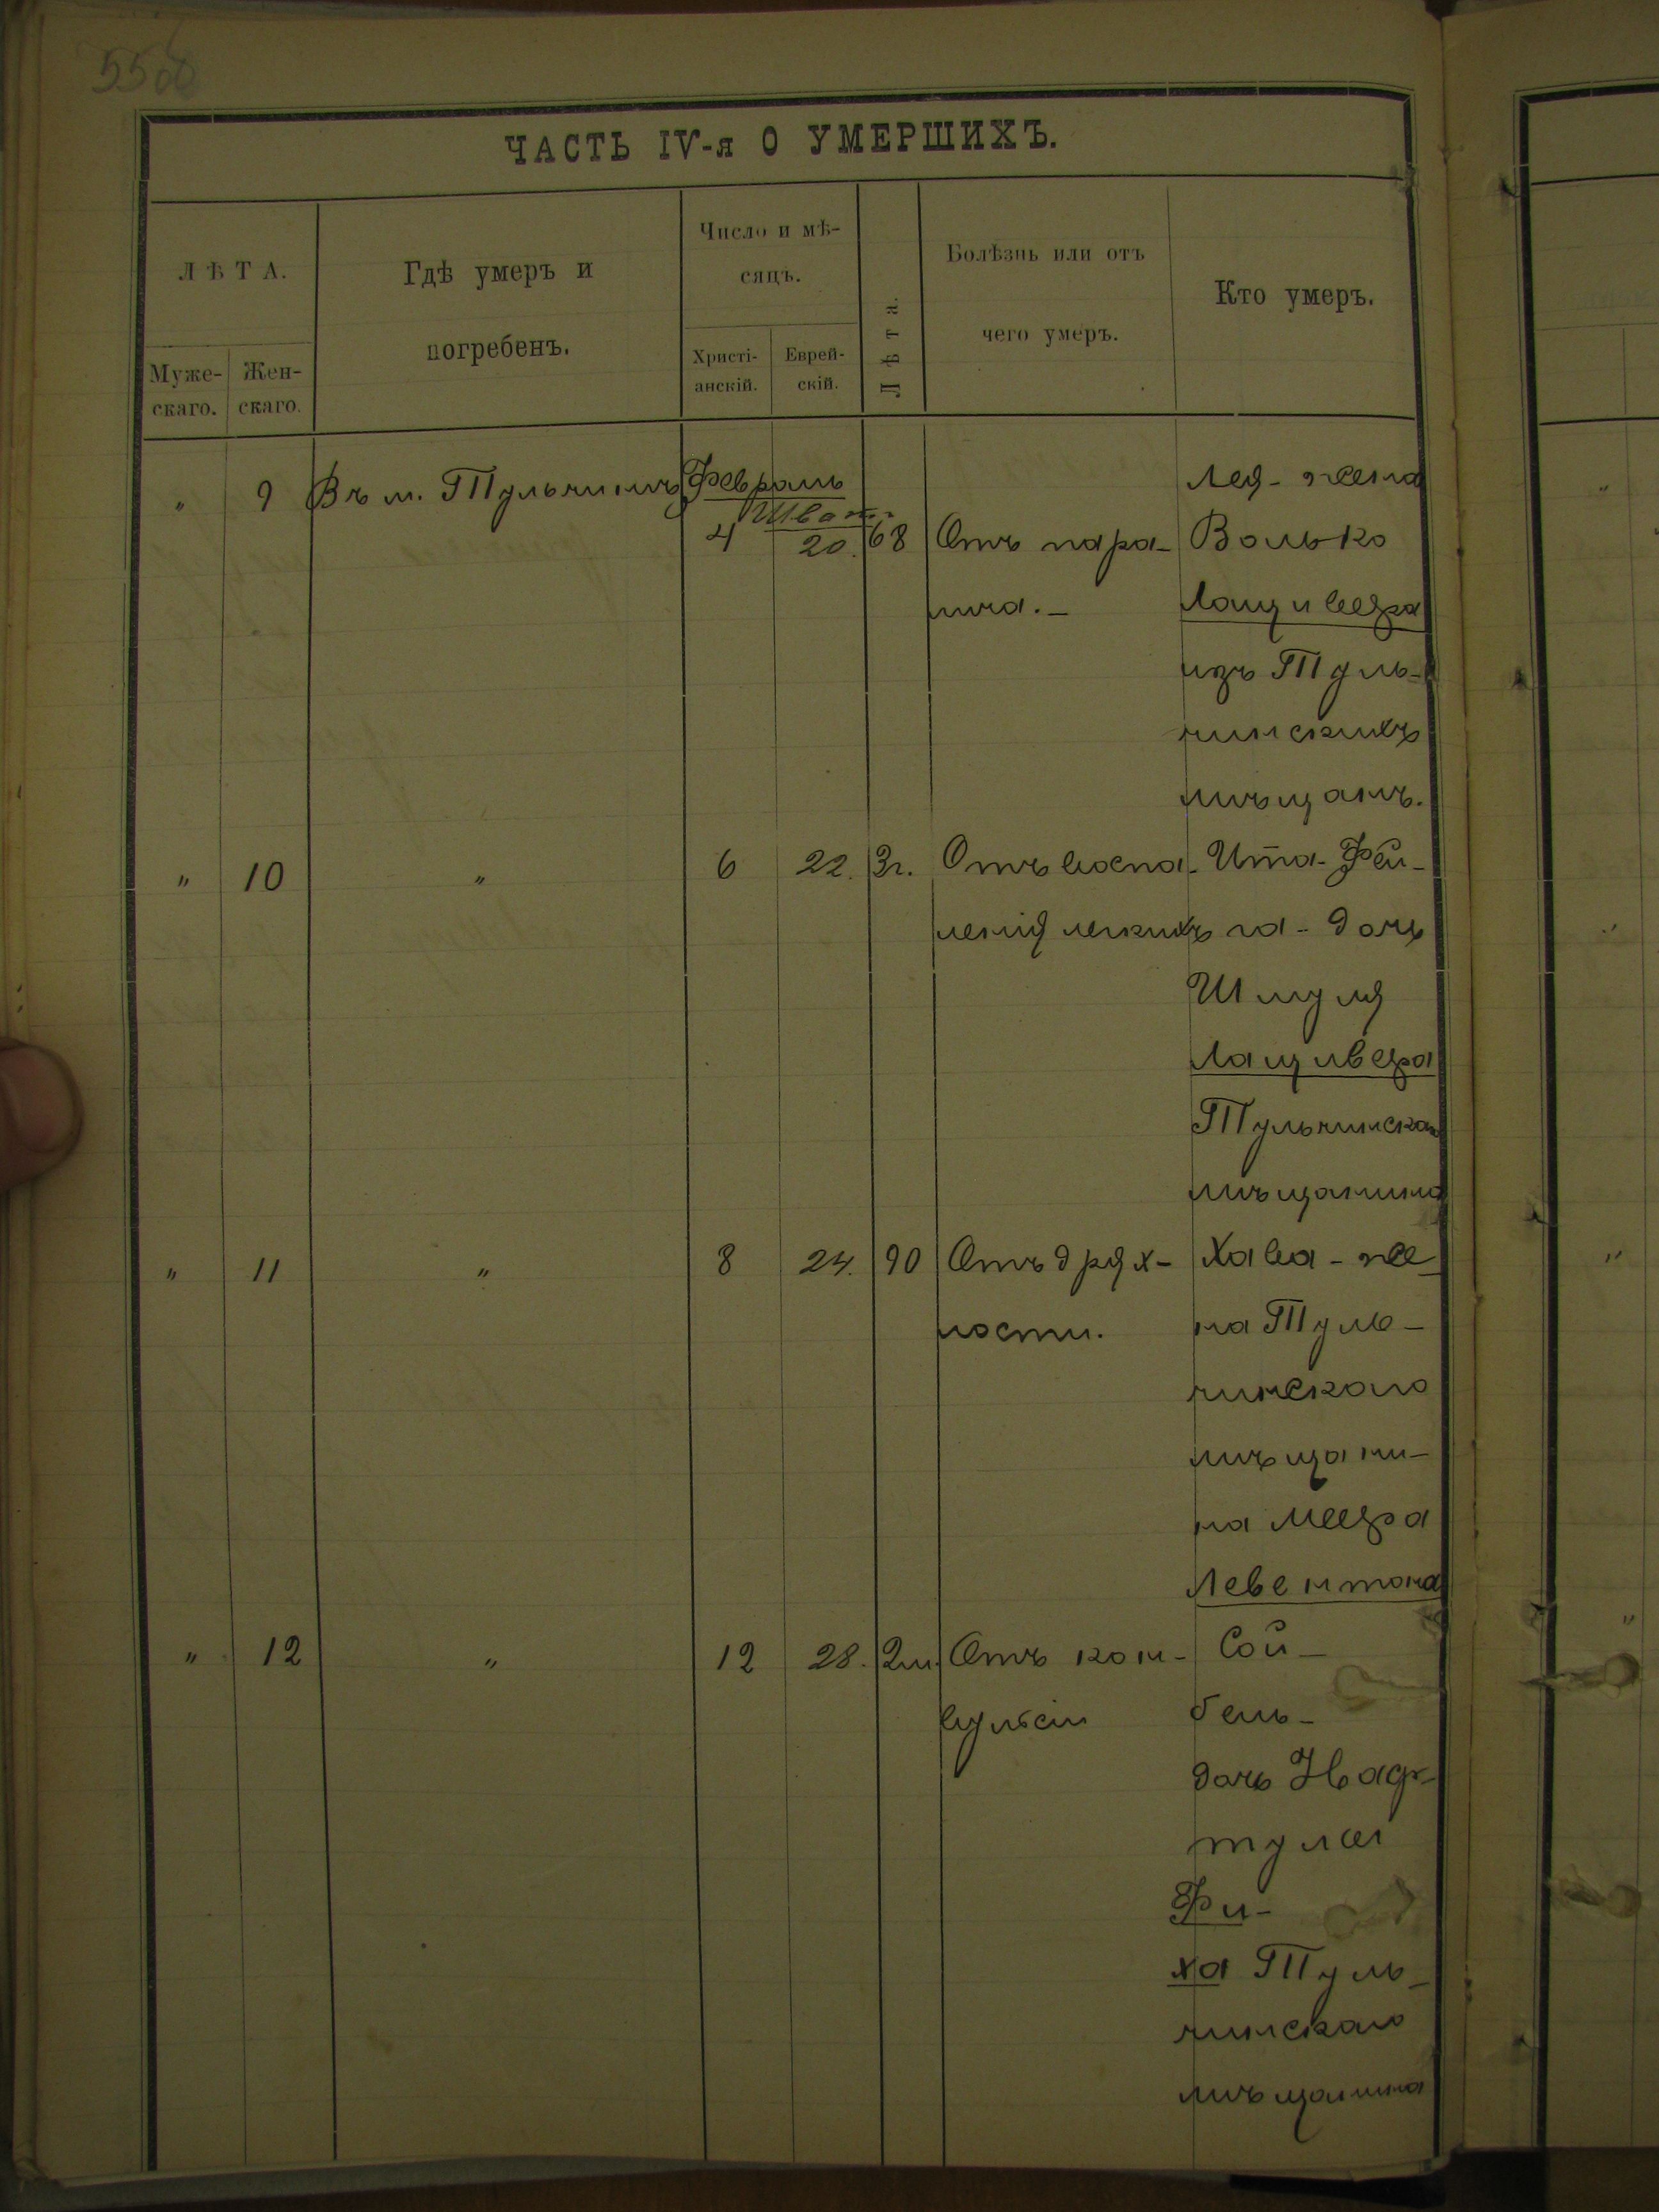 55об
ЧАСТЬ IV-я О УМЕРШИХЪ.
ЛѢТА.
Муже-
скаго.
Жен-
скаго.
Гдѣ умеръ и
погребенъ.
Число и мѣ-
сяцъ.
Христі-
анскій.
Еврей-
скій.
Лѣта.
Болѣзнь или отъ
чего умеръ.
Кто умеръ.
" 9 Въ м. Тульчинѣ Февраль Лея - жена
Шват
4 20. 68 Отъ пара- Волько
лича. - Лащивера
изъ Туль-
чинскихъ
мѣщанъ.
" 10 " 6 22. 3г. Отъ воспа- Ита-Фей-
ленія легкихъ га - дочь
Шмуля
Лащивера
Тульчинскаго
мѣщанина
" 11 " 8 24. 90 Отъ дрях- Хава - же-
ности. на Туль-
чинскаго
мѣщани-
на Меера
Левентона
" 12 " 12 28. 2м. Отъ кон- Сой-
вульсіи бель-
дочь Наф-
тулы
Фи-
ха Туль-
чинскаго
мѣщанина